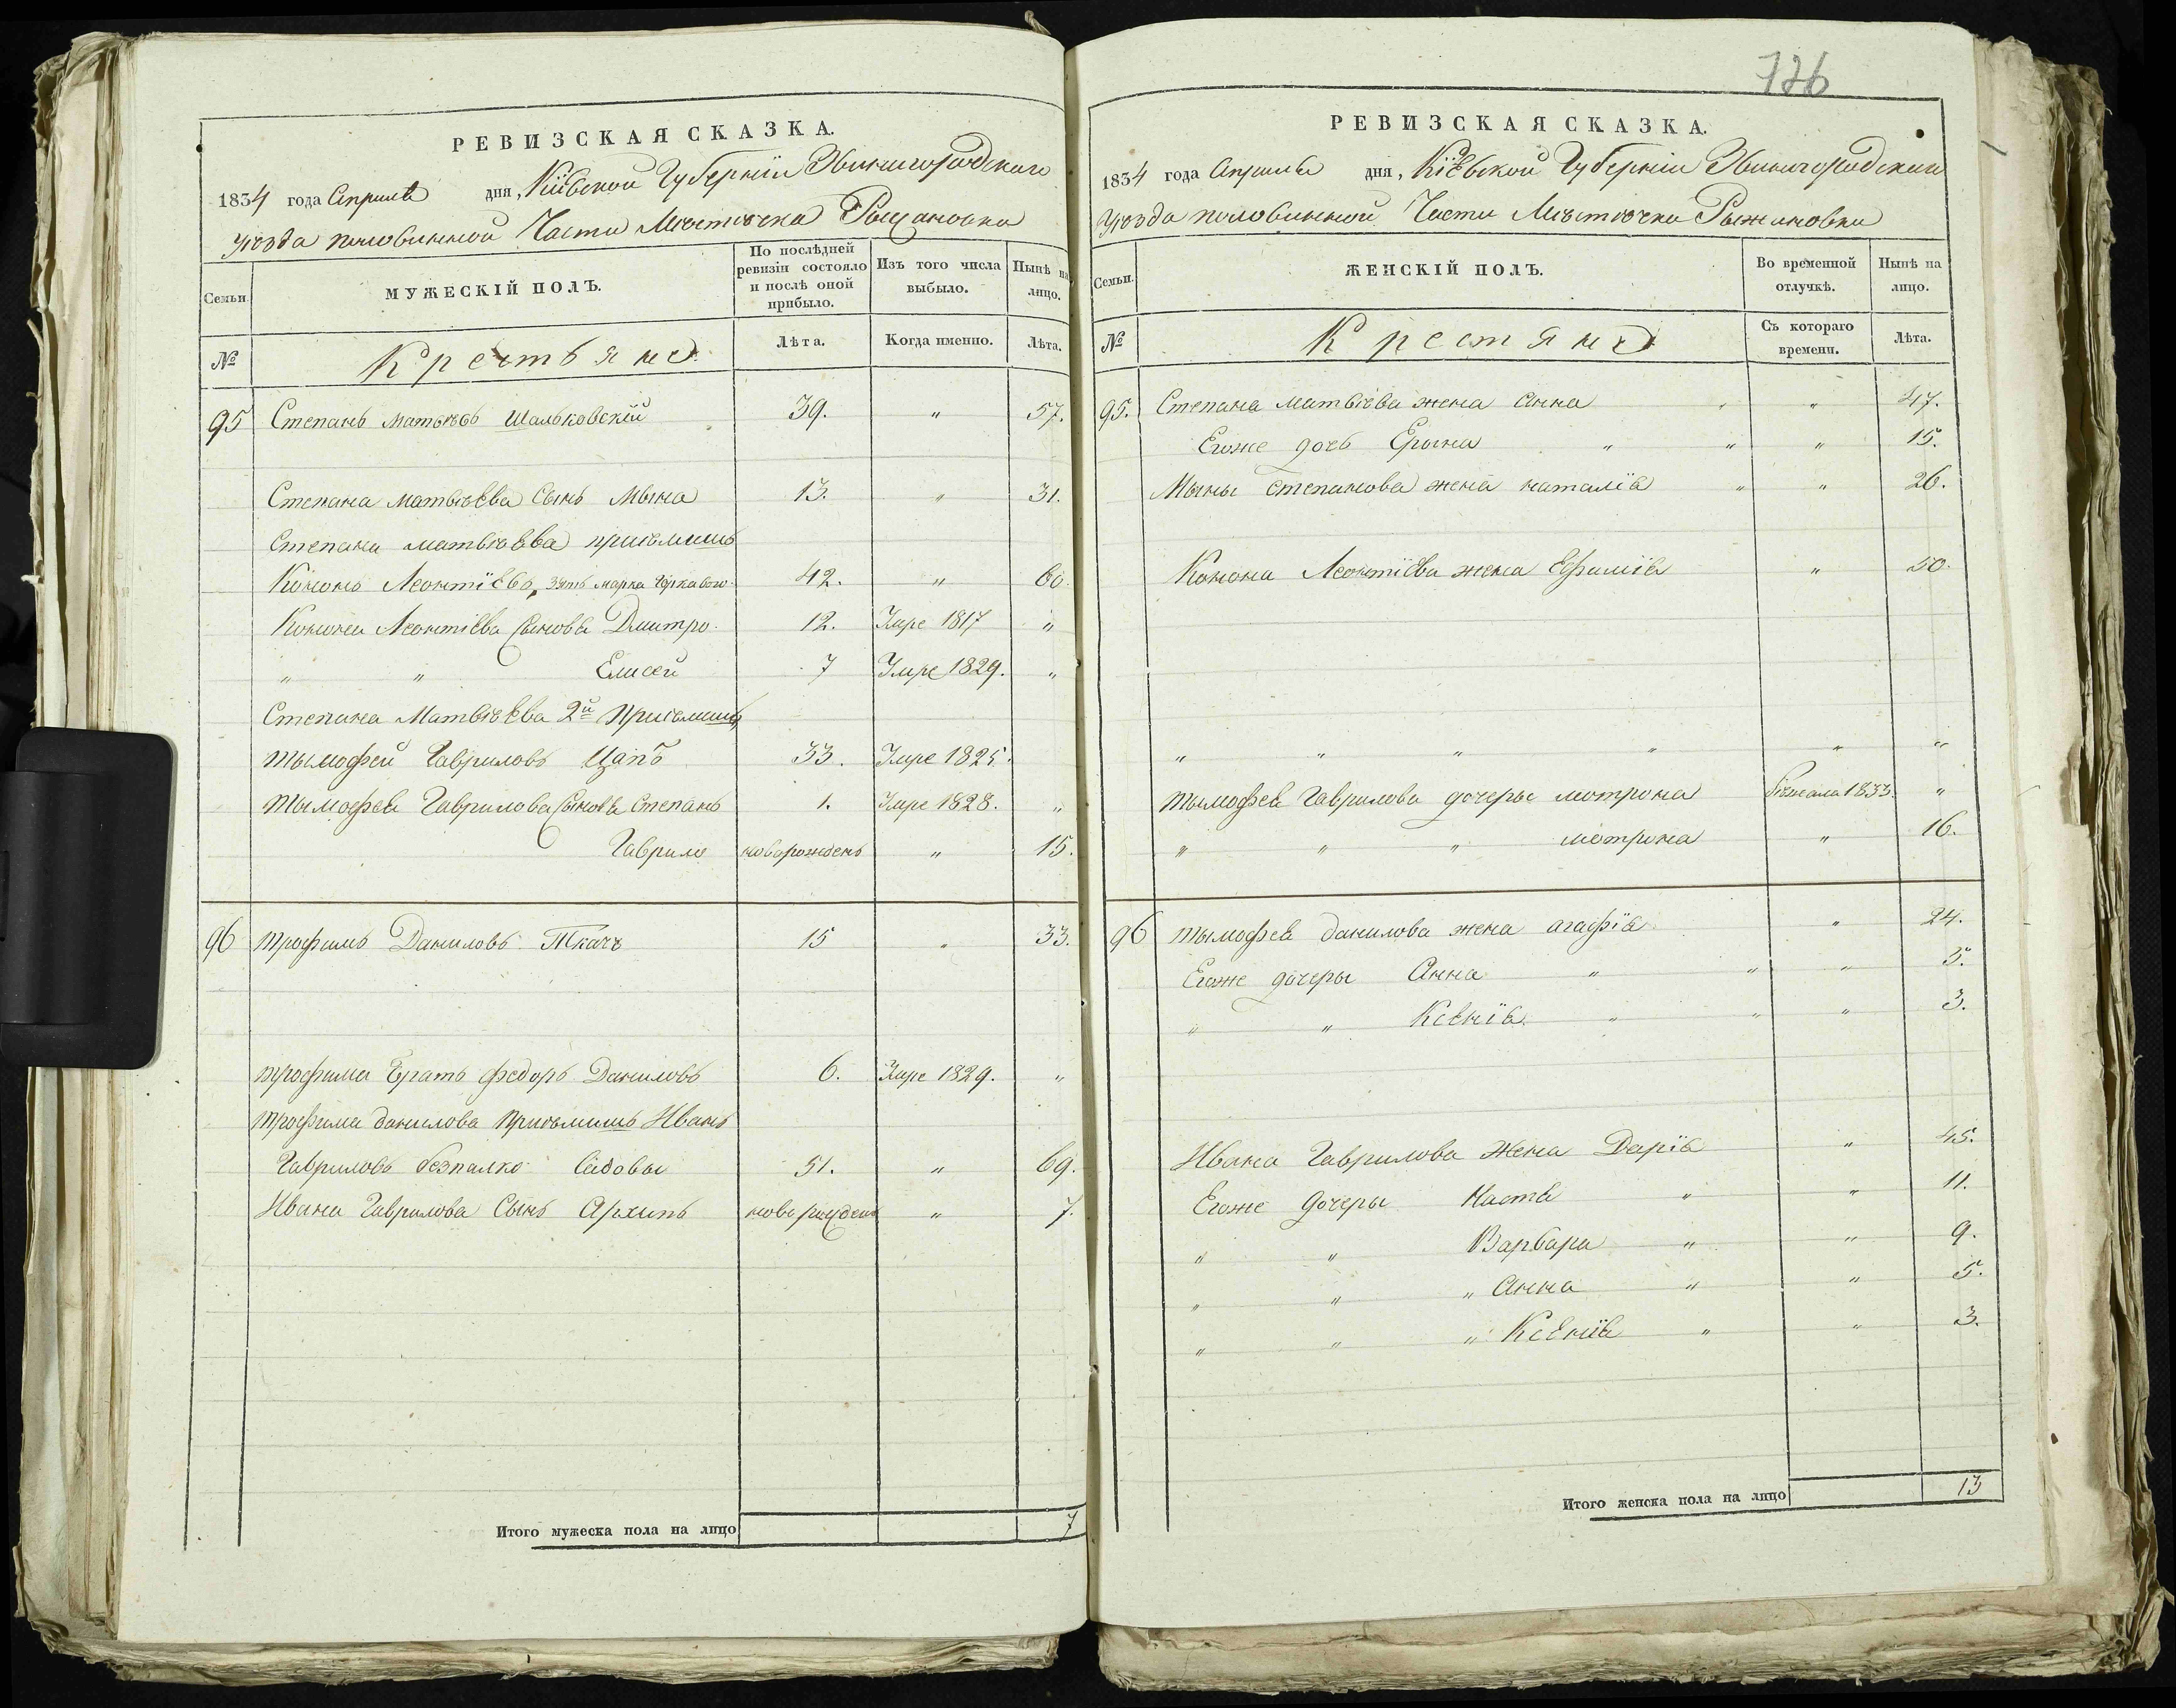 РЕВИЗСКАЯ СКАЗКА.
1834 года Апреля дня, Кіевской Губерніи Звинигородскаго
уѣзда половинной Части Мѣстѣчка Рыжановки
Семьи. МУЖЕСКІЙ ПОЛЪ. По послѣдней ревизіи состояло и послѣ оной прибыло. Изъ того числа выбыло. Нынѣ на лицо.
№ Крестьяне Лѣта. Когда именно. Лѣта.
95 Степанъ Матвѣевъ Шальковскій 39. " 57.
Степана Матвѣева Сынъ Мына 13. " 31.
Степана Матвѣева приѣмишъ
Кононъ Леонтіевъ, зять марка 42. " 60.
Конона Леонтіева Сыновья Дмитро 12. Умре 1817 "
" " Елисей 7 Умре 1829. "
Степана Матвѣева 2й Приѣмишъ
Тымофей Гавриловъ Цапъ 33. Умре 1825.
Тымофея Гаврилова Сыновья Степанъ 1. Умре 1828. "
Гаврило новорожденъ " 15.
96 Трофимъ Даниловъ Ткачъ 15 " 33.
Трофима Братъ Федоръ Даниловъ 6. Умре 1829. "
Трофима Данилова Приѣмишъ Иванъ
Гавриловъ безпалко 51. " 69.
Ивана Гаврилова Сынъ Архипъ новорожденъ " 7.
Итого мужеска пола на лицо 7
726
РЕВИЗСКАЯ СКАЗКА.
1834 года Апреля дня, Кіевской Губерніи Звинигородскаго
Уѣзда половинной Части Мѣстѣчка Рыжановки
Семьи. ЖЕНСКІЙ ПОЛЪ. Во временной отлучкѣ. Нынѣ на лицо.
№ Крестяне Съ котораго времени. Лѣта.
95. Степана Матвѣева жена Анна " " 47.
Егоже дочь Ерына " " " 15.
Мыны Степанова жена Наталія " " 26.
Конона Леонтіева жена Ефимія " 50.
" " " " " "
Тымофея Гаврилова дочеры мотрона бѣжала 1833. "
" " " мотрона " 16.
96 Тымофея Данилова жена агафія " 24.
Егоже дочеры Анна " " " 5.
" " Ксенія " " " 3.
Ивана Гаврилова Жена Дарія " 45.
Егоже дочеры Настя " " 11.
" " Варвара " " 9.
" " " Анна " " 5.
" " " Ксенія " " 3.
Итого женска пола на лицо 13